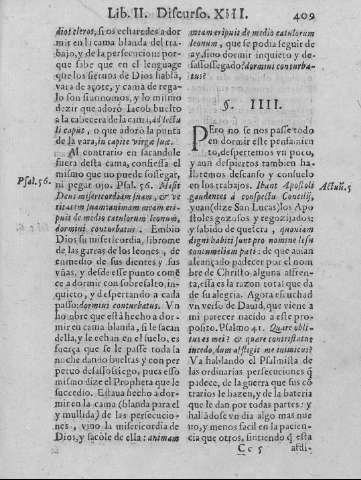 Lib. II. Discurso. XIII. 409
dios cleros, si os echaredes a dor
mir en la cama blanda del traba
jo, y de la persecucion: porque
sabe que en el lenguage
que los sieruos de Dios hablã,
vara de açote, y cama de rega-
lo son sinonomos, y lo mismo
dezir que adorò Iacob buelto
a la cabecera de la cama, ad lectu
li caput, o que adorò la punta
de la vara, in capite virgæ suæ.
Al contrario en sacandole
fuera desta cama, confiessa el
mismo que no puede sossegar,
ni pegar ojo. Psal. 56. Misit
Deus misericordiam suam, & ve
ritatem suam animam meam eri-
puit de medio catulorum leonum,
dormiui conturbatus. Embiò
Dios su misericordia, librome
de las garras de los leones, de
enmedio de sus dientes y sus
vñas, y desde esse punto comẽ
ce a dormir con sobresalto, in-
quieto, y despertando a cada
passo: dormiui conturbatus. Vn
hombre que està hecho a dor-
mir en cama blanda, si le sacan
della, y le echan en el suelo, es
fuerça que se le passe toda la
noche dando bueltas y con per
petuo desassossiego, pues esso
mismo dize el Propheta que le
sucedio. Estaua hecho a dor-
mir en la cama (blanda para el
y mullida) de las persecucio-
nes, vino la misericordia de
Dios, y sacòle de ella: animam
Psal. 56.
meam eripuit de medio catulorum
leonum, que se podia seguir de
ay, sino dormir inquieto y de-
sassossegado? dormiui conturba-
tus?
§. IIII.
PEro no se nos passe todo
en dormir esse pensamien
to, despertemos vn poco,
y aun despiertos tambien ha-
llaremos descanso y consuelo
en los trabajos. Ibant Apostoli
gaudentes à conspectu Concilij,
yuan (dize San Lucas) los Apo
stoles gozosos y regozijados:
y sabido de que era, quoniam
digni habiti sunt pro nomine Iesu
contumeliam pati: de que auian
alcançado padecer por el nom
bre de Christo alguna affren-
ta, essa es la razon total que da
de su alegria. Agora escuchad
vn verso de Dauid, que viene a
mi parecer nacido a este pro-
posito. Psalmo 41. Quare obli-
tus es mei? & quare contristatus
incedo, dum affligit me inimicus?
Va hablando el Psalmista de
las ordinarias persecuciones q̃
padece, de la guerra que sus cõ
trarios le hazen, y de la bateria
que le dan por todas partes: y
hallãdose vn dia algo mas nue
uo, y menos facil en la pacien-
cia que otros, sintiendo q̃ esta
Actuũ. 5
Cc 5 afli-